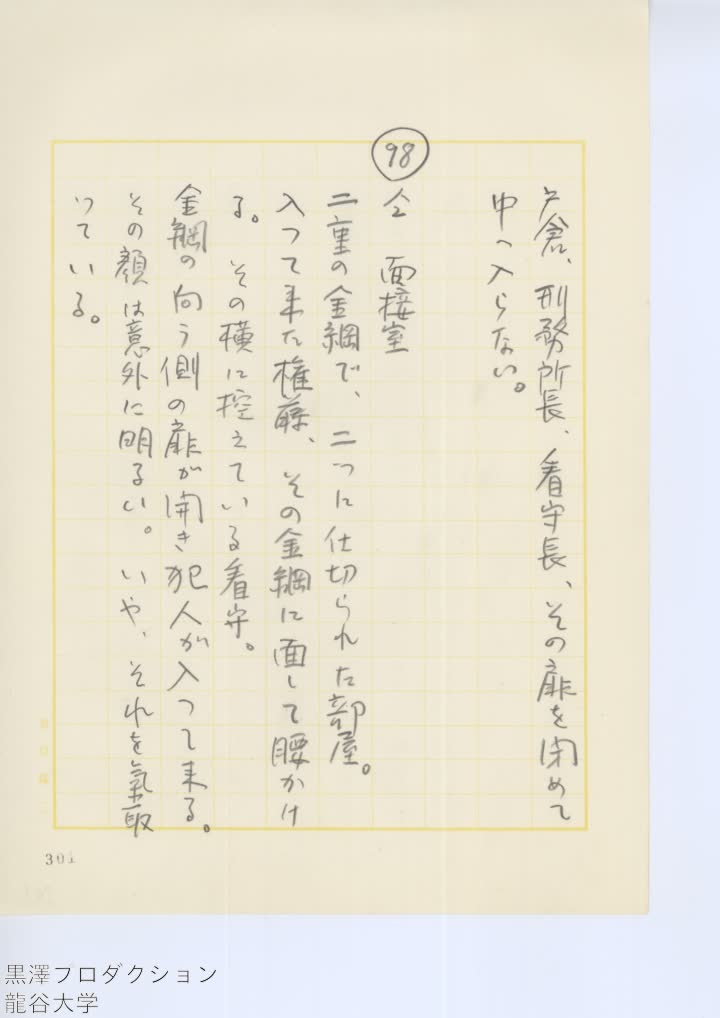 戸倉、刑務所長、看守長、その扉を閉めて
中へ入らない。
98
仝 面接室
二重の金網で、二つに仕切られた部屋。
入つて来た権藤、その金網に面して腰かけ
る。その横に控えている看守。
金網の向う側の扉が開き犯人が入つて来る。
その顔は意外に明るい。いや、それを氣取
つている。
301
黒澤プロダクション
龍谷大学